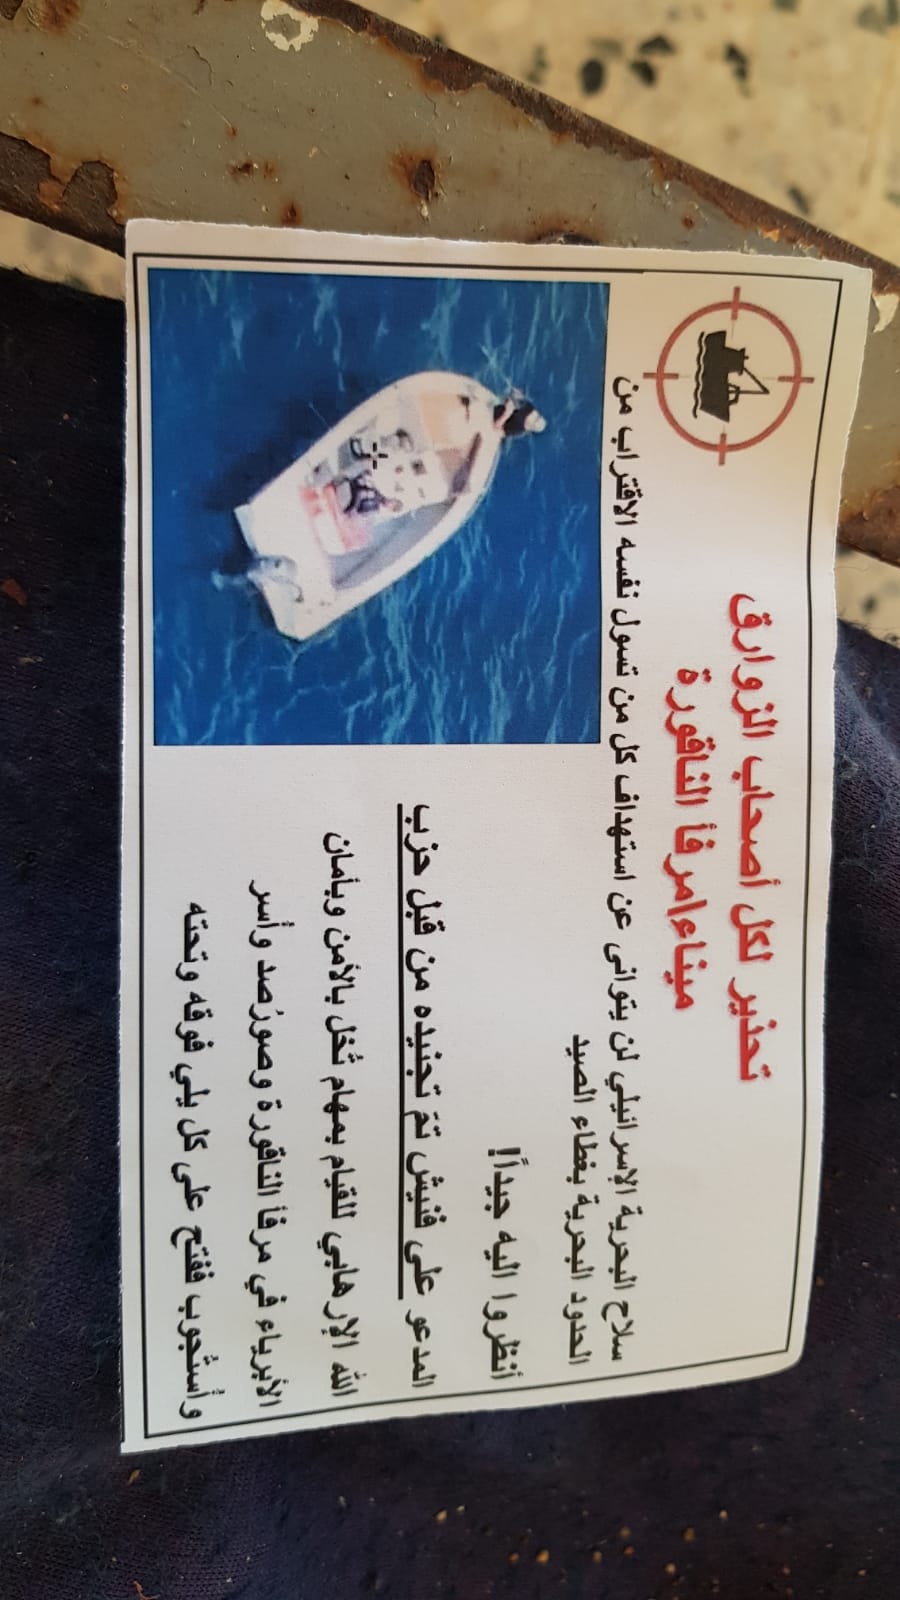 تحذير لكل أصحاب الزوارق
ميناء/مرفأ الناقورة
سلاح البحرية الإسرائيلي لن يتوانى عن استهداف كل من تسول نفسه الاقتراب من
الحدود البحرية بغطاء الصيد
أنظروا اليه جيداً!
المدعو على فنيش تمّ تجنيده من قبل حزب
الله الإرهابي للقيام بمهام تُخل بالأمن وبأمان
الأبرياء في مرفأ الناقورة وصورُصد وأسر
وأستُجوب ففتح على كل يلي فوقه وتحته